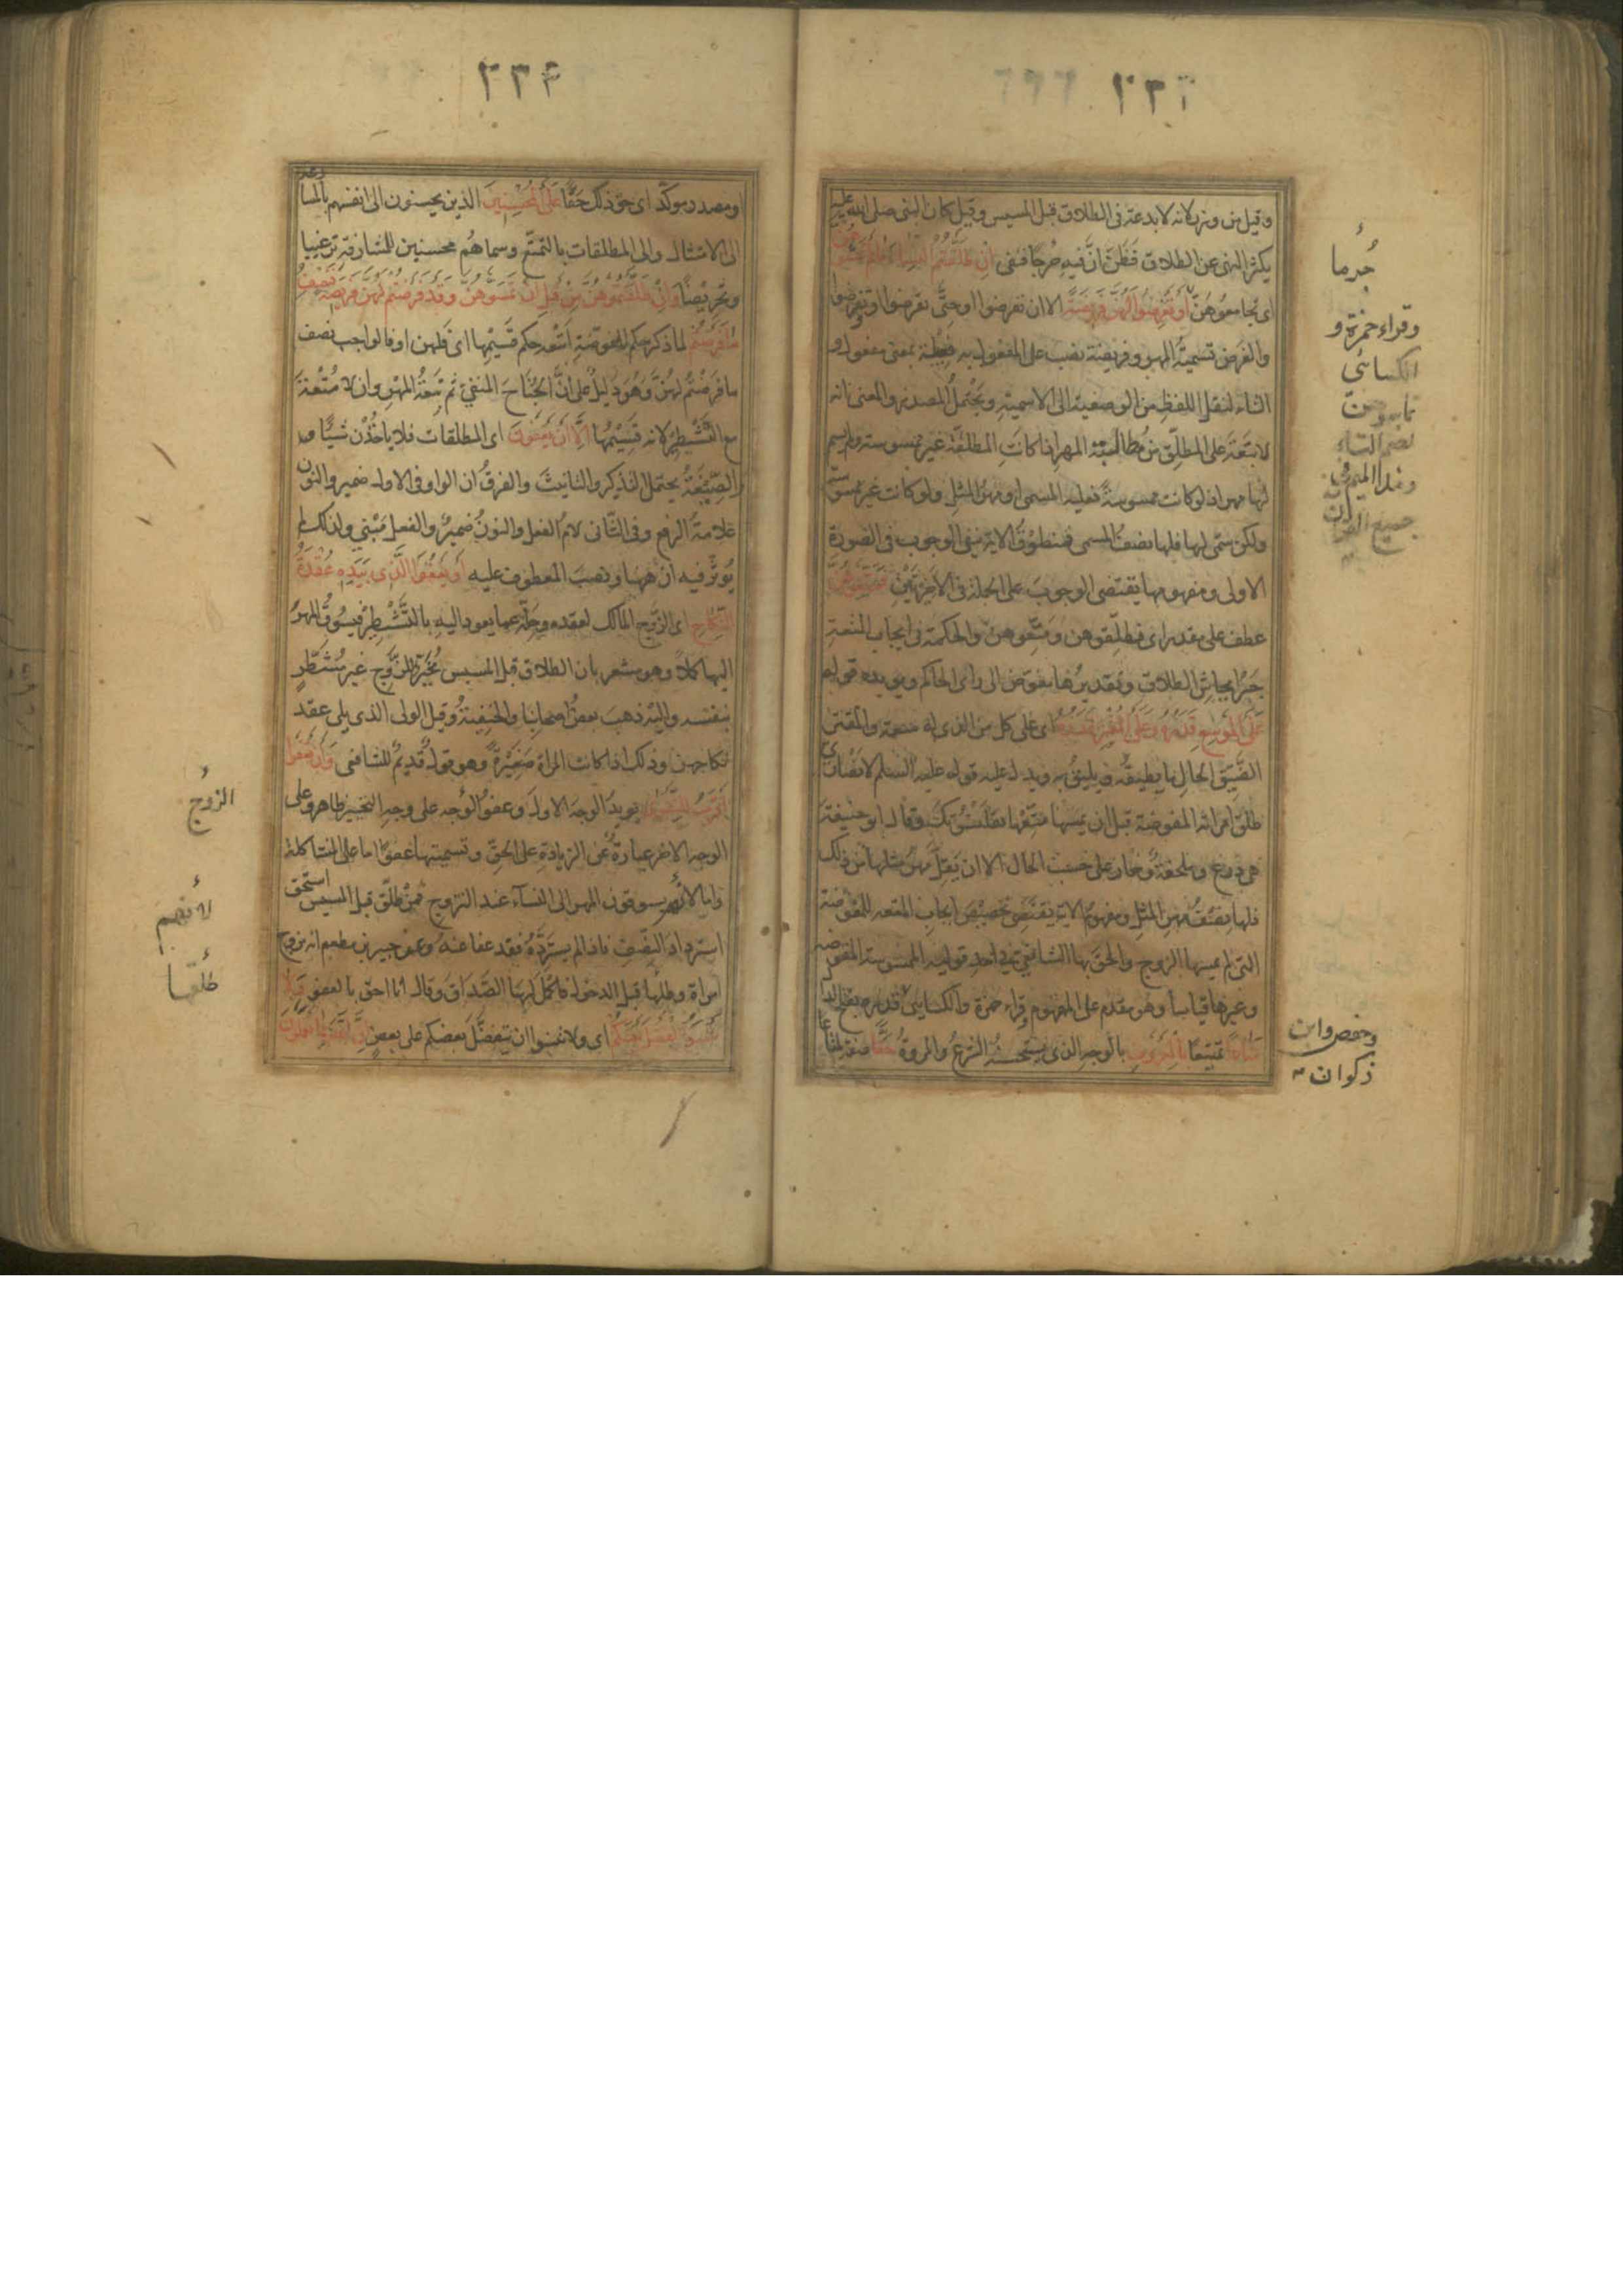 ٢٣٦
وقيل من وزر لانه لا بدعة فى الطلاق قبل المسيس وقيل كان النبى صلى الله عليه
يكثر النهى عن الطلاق فَظُنَّ انَّ فيه حرجًا فنفى ان طلقتم النساء ما لم تمسوهن
اى تجامعوهن او تفرضوا لهن فريضة الا ان تفرضوا او حتى تفرضوا او تفرضوا
والفرض تسمية المهر وفريضة نصب على المفعول به فعيلة بمعنى مفعول و
التاء لنقل اللفظ من الوصفية الى الاسمية ويحتمل المصدر والمعنى انه
لا تبعة على المطلق من مطالبة المهر اذا كانت المطلقة غير ممسوسة ولم يسم
لها مهر اذ لو كانت ممسوسة فعليه المسمى او مهر المثل ولو كانت غير ممسوسة
ولكن سمى لها فلها نصف المسمى فمنطوق الاية ينفى الوجوب فى الصورة
الاولى ومفهومها يقتضى الوجوب على الجملة فى الاخيرتين فمتعوهن
عطف على مقدر اى فطلقوهن ومتعوهن والحكمة فى ايجاب المتعة
جبر ايحاش الطلاق وتقديرها مفوض الى راى الحاكم ويويده قوله
على الموسع قدره وعلى المقتر قدره اى على كل من الذى له سعة والمقتر
الضيق الحال ما يطيقه ويليق به ويدل عليه قوله عليه السلم لانصارى
طلق امراته المفوضة قبل ان يمسها متعها بقلنسوتك وقال ابو حنيفة
هى درع وملحفة وخمار على حسب الحال الا ان يقل مهر مثلها من ذلك
فلها نصف مهر المثل ومفهوم الاية يقتضى تخصيص ايجاب المتعة للمفوضة
التى لم يمسها الزوج والحق بها الشافعى فى احد قوليه الممسوسة المفوضة
وغيرها قياسا وهو مقدم على المفهوم وقراء حمزة والكسائى قدره بفتح الدال
متاعا تمتيعًا بالمعروف بالوجه الذى يستحسنه الشرع والمروة حقًّا صفة لمتاعا
جرما
وقراء حمزة و
الكسائى
تماسوهن
بضم التاء
ومد الميم فى
جميع القران
وحفص وابن
ذكوان
٢٣٤
او مصدر موكد اى حق ذلك حقًّا على المحسنين الذين يحسنون الى انفسهم بالمسارعة
الى الامتثال والى المطلقات بالتمتع وسماهم محسنين للمشارفة ترغيبا
وتحريضًا وان طلقتموهن من قبل ان تمسوهن وقد فرضتم لهن فريضة فنصف
ما فرضتم لما ذكر حكم المفوضة اتبعه حكم قسيمها اى فلهن او فالواجب نصف
ما فرضتم لهن وهو دليل على ان الجناح المنفى ثم تبعة المهر وان لا متعة
مع التشطير لانه قسيمها الا ان يعفون اى المطلقات فلا ياخذن شيئًا و
الصيغة يحتمل التذكير والتانيث والفرق ان الواو فى الاول ضمير والنون
علامة الرفع وفى الثانى لام الفعل والنون ضمير والفعل مبنى ولذلك لم
يوثر فيه ان ههنا ونصب المعطوف عليه او يعفو الذى بيده عقدة
النكاح اى الزوج المالك لعقده وحله عما يعود اليه بالتشطير فيسوق المهر
اليها كملا وهو مشعر بان الطلاق قبل المسيس مخير للزوج غير مشطر
بنفسه واليه ذهب بعض اصحابنا والحنفية وقيل الولى الذى يلى عقد
نكاحهن وذلك اذا كانت المراة صغيرة وهو قول قديم للشافعى وان تعفوا
اقرب للتقوى يويد الوجه الاول وعفو الوجه على وجه التخيير ظاهر وعلى
الوجه الاخر عبارة عن الزيادة على الحق وتسميتها عفوًا اما على المشاكلة
واما لانهم يسوقون المهر الى النساء عند التزوج فمن طلق قبل المسيس استحق
استرداد النصف فاذا لم يسترده فقد عفا عنه وعن جبير بن مطعم انه تزوج
امراة وطلقها قبل الدخول فاكمل لها الصداق وقال انا احق بالعفو ولا
تنسوا الفضل بينكم اى ولا تنسوا ان يتفضل بعضكم على بعض ان الله بما تعملون
الزوج
لانهم
طلقها